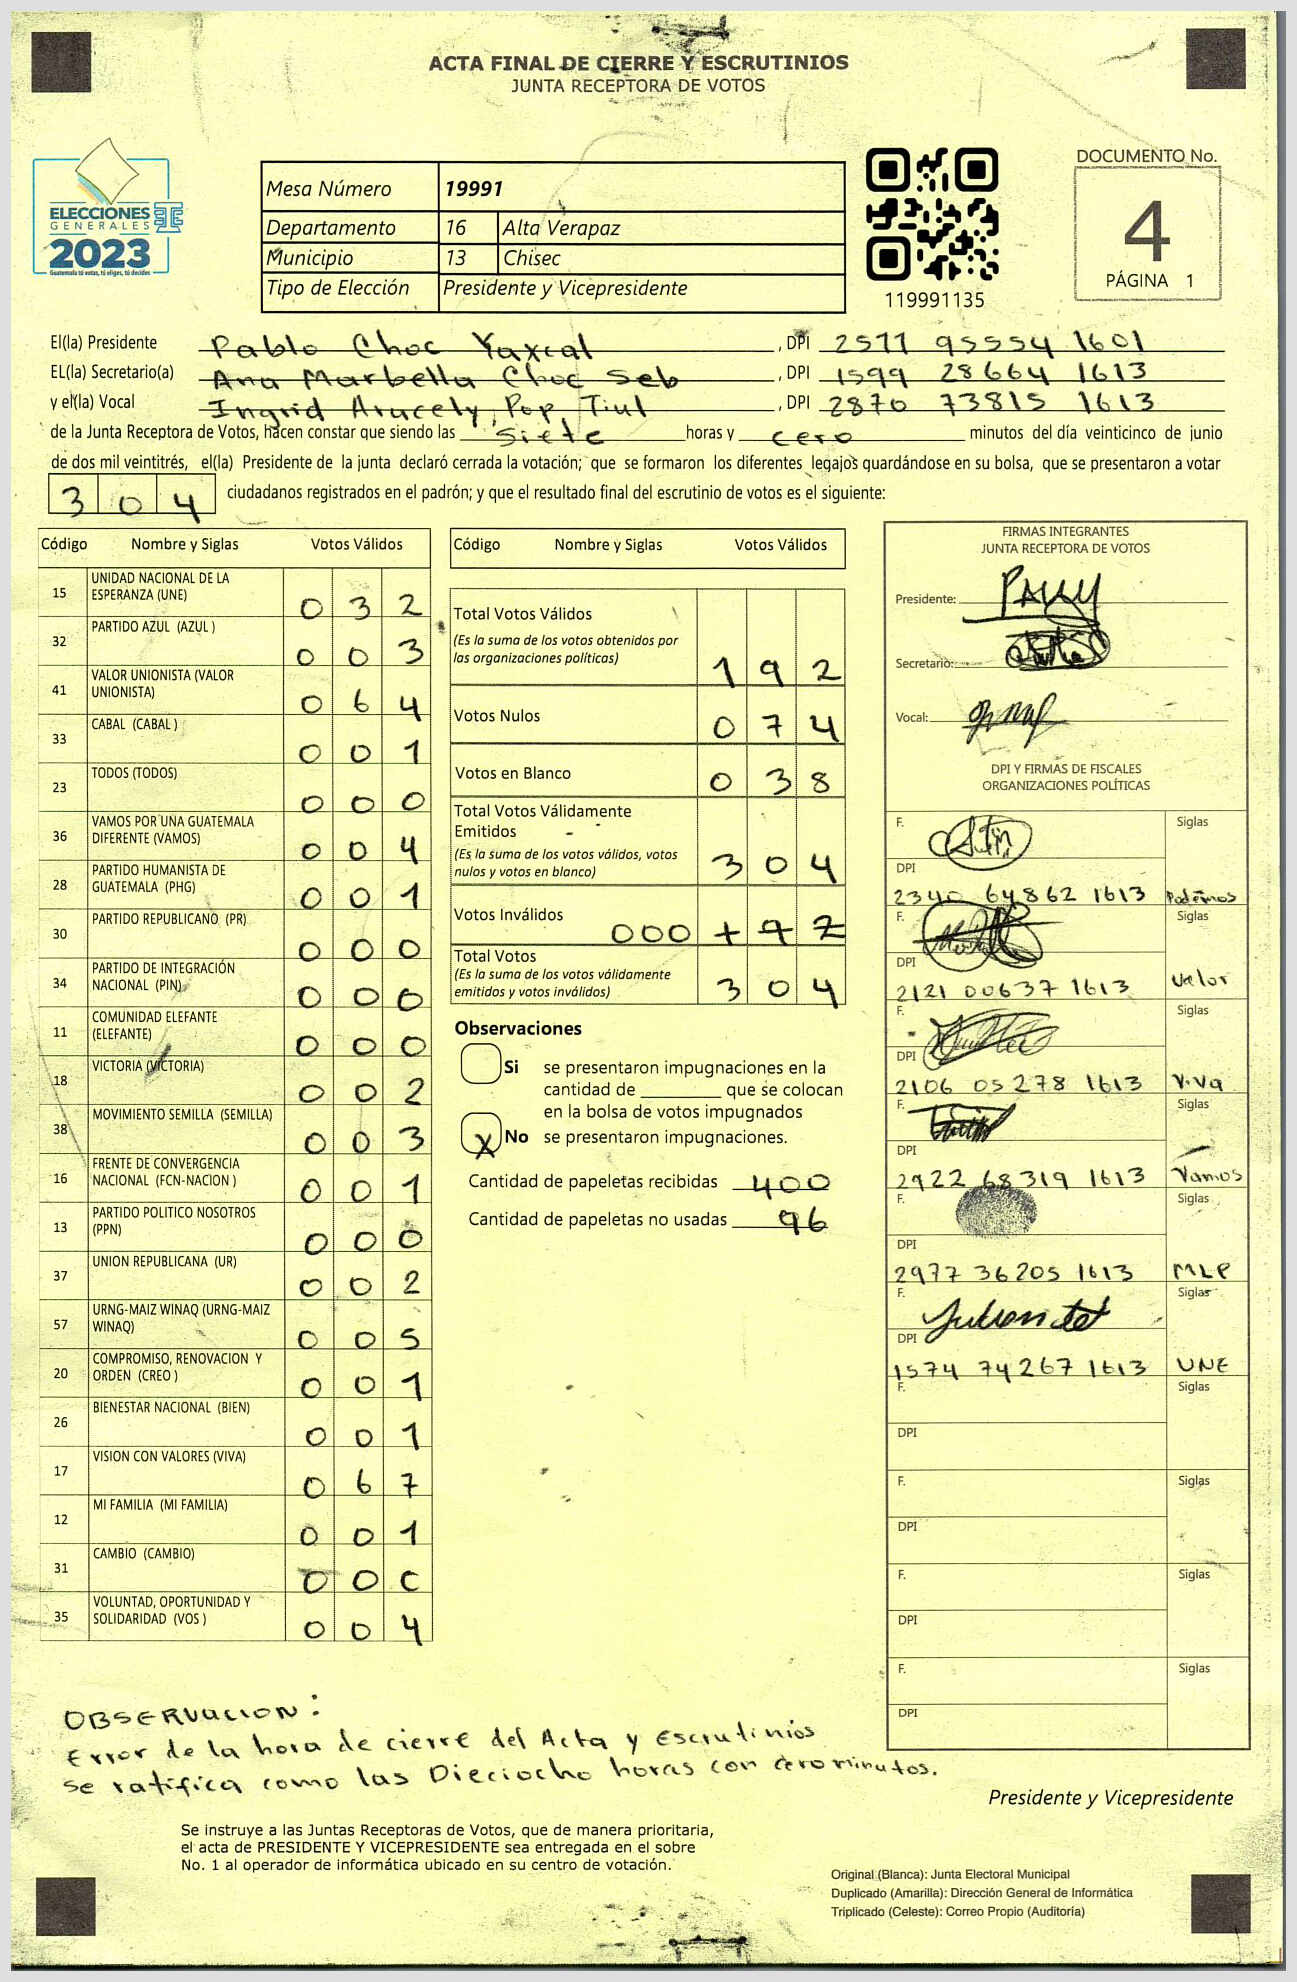 ACTA FINAL DE CIERRE Y ESCRUTINIOS
JUNTA RECEPTORA DE VOTOS
ELECCIONES
GENERALES
2023
Guatemala tú votas, tú eliges, tú decides
Mesa Número 19991
Departamento 16 Alta Verapaz
Municipio 13 Chisec
Tipo de Elección Presidente y Vicepresidente
119991135
DOCUMENTO No.
4
PÁGINA 1
El(la) Presidente Pablo Choc Yaxcal , DPI 2577 95554 1601
EL(la) Secretario(a) Ana Marbella Choc Seb , DPI 1599 28664 1613
y el(la) Vocal Ingrid Aracely Pop Tiul , DPI 2870 73815 1613
de la Junta Receptora de Votos, hacen constar que siendo las siete horas y cero minutos del día veinticinco de junio
de dos mil veintitrés, el(la) Presidente de la junta declaró cerrada la votación; que se formaron los diferentes legajos guardándose en su bolsa, que se presentaron a votar
304 ciudadanos registrados en el padrón; y que el resultado final del escrutinio de votos es el siguiente:
Código Nombre y Siglas Votos Válidos
15 UNIDAD NACIONAL DE LA
ESPERANZA (UNE) 032
32 PARTIDO AZUL (AZUL ) 003
41 VALOR UNIONISTA (VALOR
UNIONISTA) 064
33 CABAL (CABAL ) 001
23 TODOS (TODOS) 000
36 VAMOS POR UNA GUATEMALA
DIFERENTE (VAMOS) 004
28 PARTIDO HUMANISTA DE
GUATEMALA (PHG) 001
30 PARTIDO REPUBLICANO (PR) 000
34 PARTIDO DE INTEGRACIÓN
NACIONAL (PIN) 000
11 COMUNIDAD ELEFANTE
(ELEFANTE) 000
18 VICTORIA (VICTORIA) 002
38 MOVIMIENTO SEMILLA (SEMILLA) 003
16 FRENTE DE CONVERGENCIA
NACIONAL (FCN-NACION ) 001
13 PARTIDO POLITICO NOSOTROS
(PPN) 000
37 UNION REPUBLICANA (UR) 002
57 URNG-MAIZ WINAQ (URNG-MAIZ
WINAQ) 005
20 COMPROMISO, RENOVACION Y
ORDEN (CREO ) 001
26 BIENESTAR NACIONAL (BIEN) 001
17 VISION CON VALORES (VIVA) 067
12 MI FAMILIA (MI FAMILIA) 001
31 CAMBIO (CAMBIO) 000
35 VOLUNTAD, OPORTUNIDAD Y
SOLIDARIDAD (VOS ) 004
Código Nombre y Siglas Votos Válidos
Total Votos Válidos
(Es la suma de los votos obtenidos por
las organizaciones políticas) 192
Votos Nulos 074
Votos en Blanco 038
Total Votos Válidamente
Emitidos
(Es la suma de los votos válidos, votos
nulos y votos en blanco) 304
Votos Inválidos 000
Total Votos
(Es la suma de los votos válidamente
emitidos y votos inválidos) 304
Observaciones
Si se presentaron impugnaciones en la
cantidad de ________ que se colocan
en la bolsa de votos impugnados
X No se presentaron impugnaciones.
Cantidad de papeletas recibidas 400
Cantidad de papeletas no usadas 96
FIRMAS INTEGRANTES
JUNTA RECEPTORA DE VOTOS
Presidente:
Secretario:
Vocal:
DPI Y FIRMAS DE FISCALES
ORGANIZACIONES POLÍTICAS
F. Siglas
DPI
2340 64862 1613 Podemos
F. Siglas
DPI
2121 00637 1613 Valor
F. Siglas
DPI
2106 05278 1613 Viva
F. Siglas
DPI
2922 68319 1613 Vamos
F. Siglas
DPI
2977 36205 1613 MLP
F. Siglas
DPI
1574 74267 1613 UNE
F. Siglas
DPI
F. Siglas
DPI
F. Siglas
DPI
F. Siglas
DPI
OBSERVACION:
Error de la hora de cierre del Acta y Escrutinios
se ratifica como las Dieciocho horas con cero minutos.
Presidente y Vicepresidente
Se instruye a las Juntas Receptoras de Votos, que de manera prioritaria,
el acta de PRESIDENTE Y VICEPRESIDENTE sea entregada en el sobre
No. 1 al operador de informática ubicado en su centro de votación.
Original (Blanca): Junta Electoral Municipal
Duplicado (Amarilla): Dirección General de Informática
Triplicado (Celeste): Correo Propio (Auditoría)